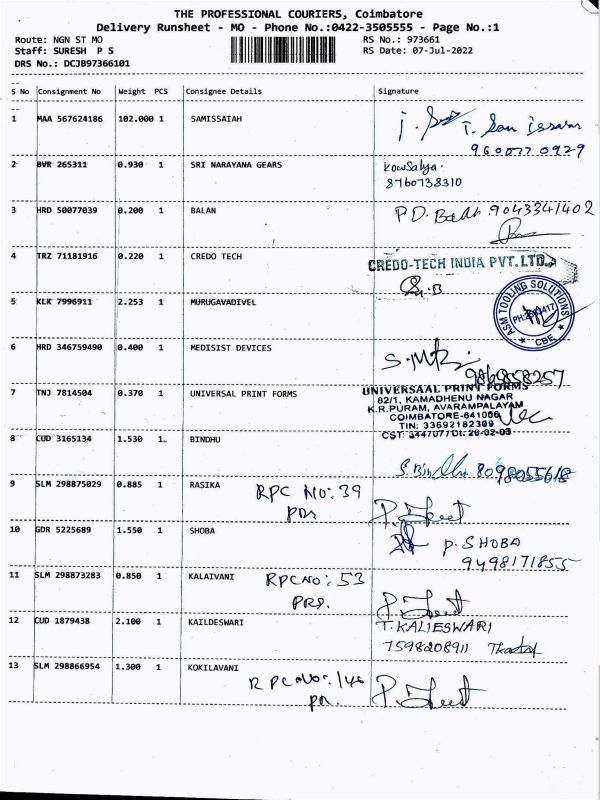 THE PROFESSIONAL COURIERS, Coimbatore
Delivery Runsheet - MO - Phone No.:0422-3505555 - Page No.:1
Route: NGN ST MO RS No.: 973661
Staff: SURESH P S RS Date: 07-Jul-2022
DRS No.: DCJB97366101
S No Consignment No Weight PCS Consignee Details Signature
1 MAA 567624186 102.000 1 SAMISSAIAH
9600770929
2 BVR 265311 0.930 1 SRI NARAYANA GEARS Kowsalya.
8760738310
3 HRD 50077039 0.200 1 BALAN P.D. 9043341402
4 TRZ 71181916 0.220 1 CREDO TECH CREDO-TECH INDIA PVT. LTD.,
5 KLK 7996911 2.253 1 MURUGAVADIVEL ASM TOOLING SOLUTIONS
CBE
6 HRD 346759490 0.400 1 MEDISIST DEVICES
9869858257
7 TNJ 7814504 0.370 1 UNIVERSAL PRINT FORMS UNIVERSAAL PRINT FORMS
82/1, KAMADHENU NAGAR
K.R.PURAM, AVARAMPALAYAM
COIMBATORE-641006
TIN: 33692182309
CST: 3447077 Dt: 28-02-03
8 CUD 3165134 1.530 1.. BINDHU
S. Bindhu 8098055618
9 SLM 298875029 0.885 1 RASIKA RPC No: 39
10 GDR 5225689 1.550 1 SHOBA P. SHOBA
9498171855
11 SLM 298873283 0.850 1 KALAIVANI RPC NO: 53
12 CUD 1879438 2.100 1 KAILDESWARI T. KALIESWARI
7598208911
13 SLM 298866954 1.300 1 KOKILAVANI RPC No: 146